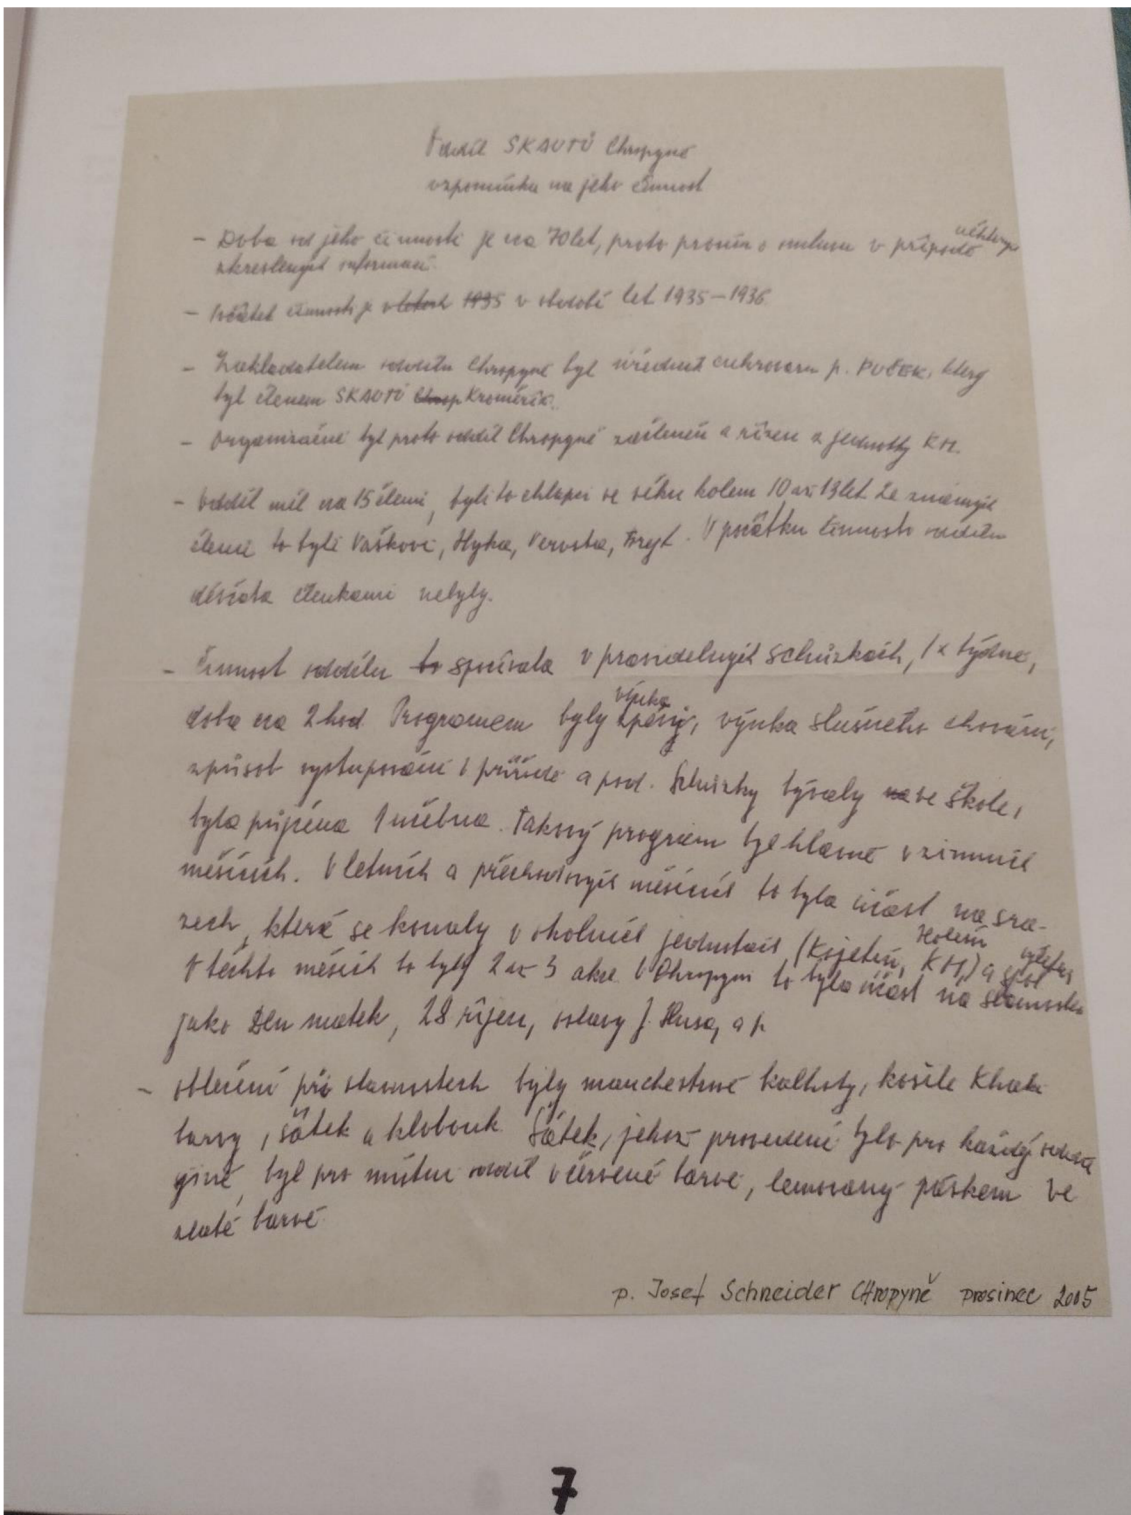 Oddíl SKAUTŮ Chropyně
vzpomínka na jeho činnost
- Doba od jeho činnosti je cca 70 let, proto prosím o omluvu v případě některých
zkreslených informací.
- Počátek činnosti je v letech 1935 v období let 1935-1936
- Zakladatelem oddílu Chropyně byl úředník cukrovaru p. PUČEK, který
byl členem SKAUTŮ Chrop Kroměříž.
- Organizačně byl proto oddíl Chropyně začleněn a řízen z jednotky KM.
- Oddíl měl cca 15 členů, byli to chlapci ve věku kolem 10 až 13 let. Ze známých
členů to byli Vaškovi, Hyka, Verosta, . V počátku činnosti oddílu
děvčata členkami nebyly.
- Činnost oddílu to spočívala v pravidelných schůzkách, 1x týdně,
doba cca 2 hod. Programem byly výuka zpěvy, výuka slušného chování,
způsob vystupování v přírodě a pod. Schůzky bývaly na ve škole,
byla půjčena 1 učebna. Takový program byl hlavně v zimních
měsících. V letních a přechodových měsících to byla účast na sra-
zech, které se konaly v okolních jednotách (Kojetín, Holešov KM,) a výlety
V těchto měsících to byly 2 až 3 akce. V Chropyni to byla účast na slavnostech
jako Den matek, 28 říjen, oslavy J. Husa, a p.
- oblečení při slavnostech byly manchestrové kalhoty, košile Khaki
barvy, šátek a klobouk. Šátek, jehož provedení bylo pro každý oddíl
jiné, byl pro místní oddíl v červené barvě, lemovaný páskem ve
zlaté barvě.
p. Josef Schneider CHropyně prosinec 2005
7